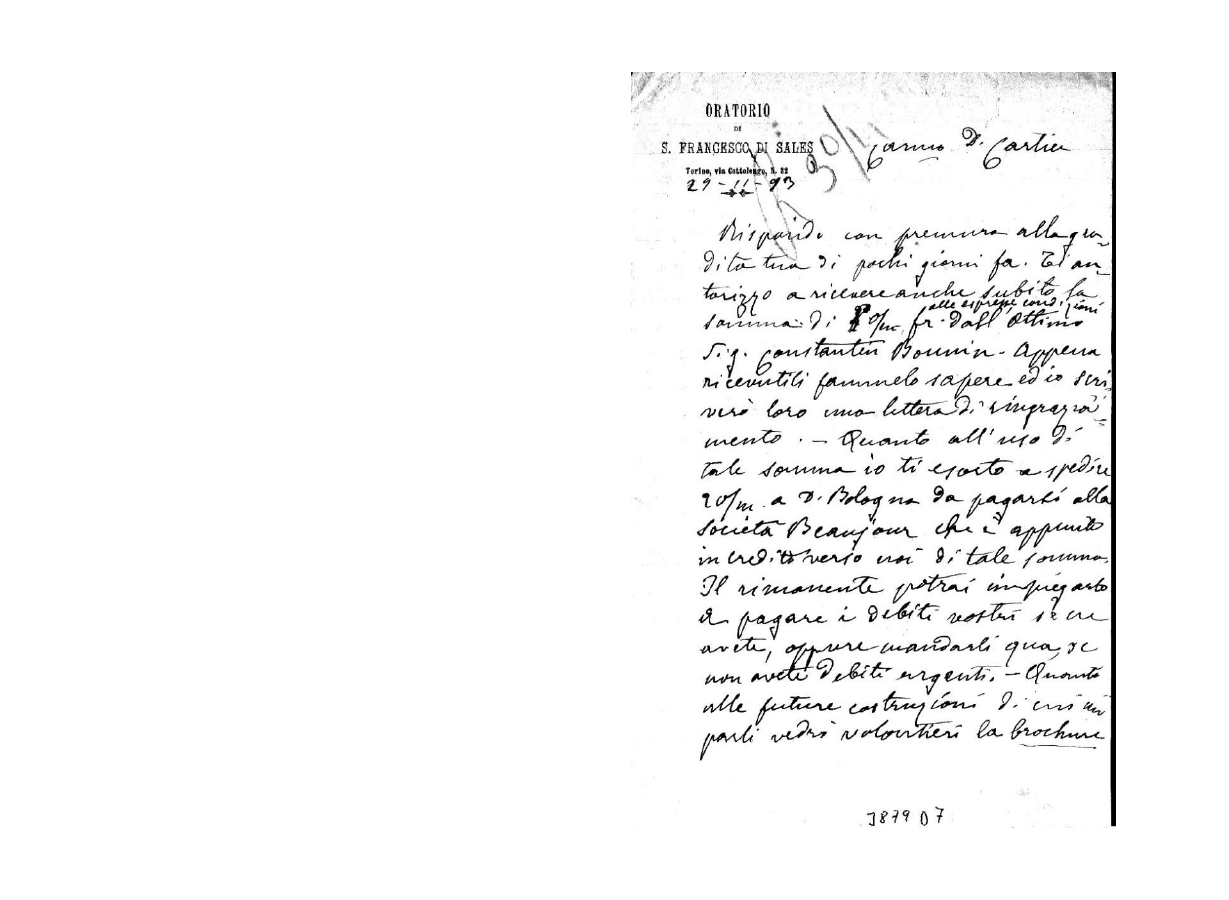 ORATORIO
DI
S. FRANCESCO DI SALES
Torino, via Cottolengo, N. 32
29-11-93
30/11
Carmo D. Cartier
Rispondo con premura alla gra-
dita tua di pochi giorni fa. Ti au-
torizzo a ricevere anche subito la
alle espresse condizioni
somma di 0/m fr. dall'ottimo
Sig. Constantin Bonnin. Appena
ricevutili fammelo sapere ed io scri-
verò loro una lettera di ringrazia-
mento. - Quanto all'uso di
tale somma io ti esorto a spedire
20/m a D. Bologna da pagarsi alla
società Beaujour che è appunto
in credito verso noi di tale somma.
Il rimanente potrai impiegarlo
a pagare i debiti vostri se ne
avete, oppure mandarli qua, se
non avete debiti urgenti. - Quanto
alle future costruzioni di cui mi
parli vedrò volontieri la brochure
3879 D 7